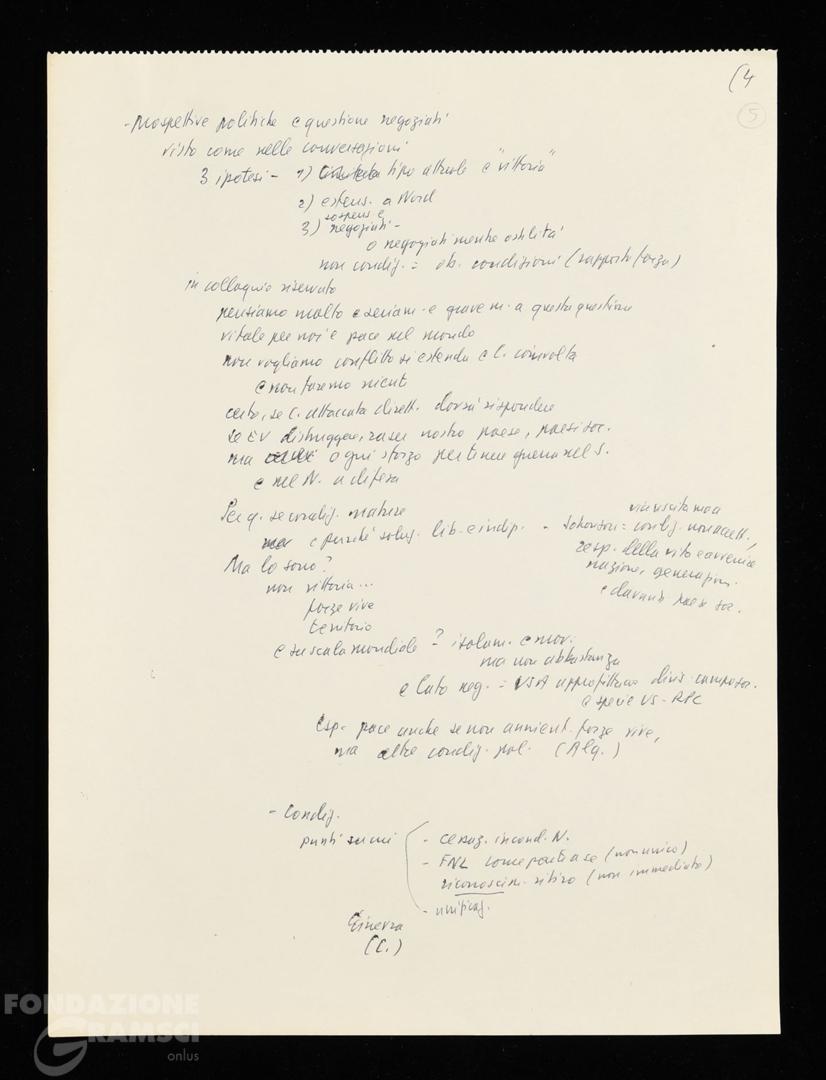 (4
5
- Prospettive politiche e questione negoziati
visto come nelle conversazioni
3 ipotesi - 1) tipo attuale e "vittoria"
2) estens. a Nord
sospens e
3) negoziati -
o negoziati mentre ostilità
non condiz. = ob. condizioni (rapporto forza)
in colloquio riservato
pensiamo molto e seriam. e gravem. a questa questione
vitale per noi e pace nel mondo
non vogliamo conflitto si estenda e C. coinvolta
e non faremo nient
certo, se C. attaccata dirett. dovrà rispondere
se EV distruggere, nostro paese, paesi soc.
ma ogni sforzo per tenere guerra nel S.
e nel N. a difesa
Per q. se condiz. mature
e purché soluz. lib. e indip. - Johnson = condiz. non accett.,
resp. della vita e avvenire
nazione, generazion.
e davanti paesi soc.
Ma lo sono?
non vittoria...
forze vive
territorio
e su scala mondiale ? isolam. e mov.
ma non abbastanza
e lato neg. = USA approfittano divis. campo soc.
e specie US - RPC
Esp. pace anche se non annient. forze vive,
ma altre condiz. pol. (Alg.)
- Condiz.
punti
- cessaz. incond. N.
- FNL come parte a se (non unico)
riconoscim. ritiro (non immediato)
- unificaz.
Ginevra
(C.)
FONDAZIONE
GRAMSCI
onlus